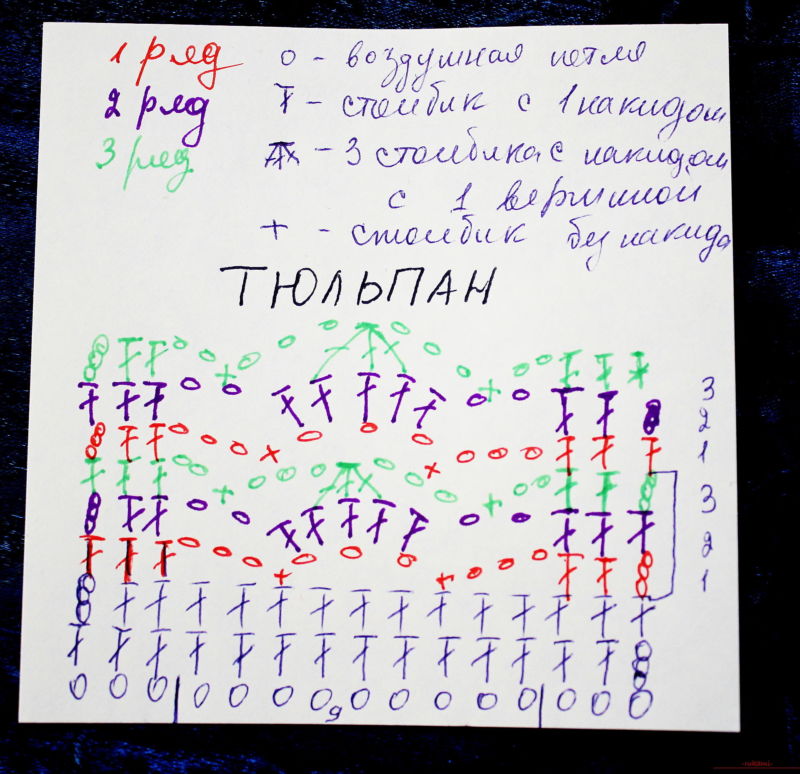 1 ряд o - воздушная петля
2 ряд - столбик с 1 накидом
3 ряд - 3 столбика с накидом
с 1 вершиной
+ - столбик без накида
ТЮЛЬПАН
3
2
1
3
2
1
9